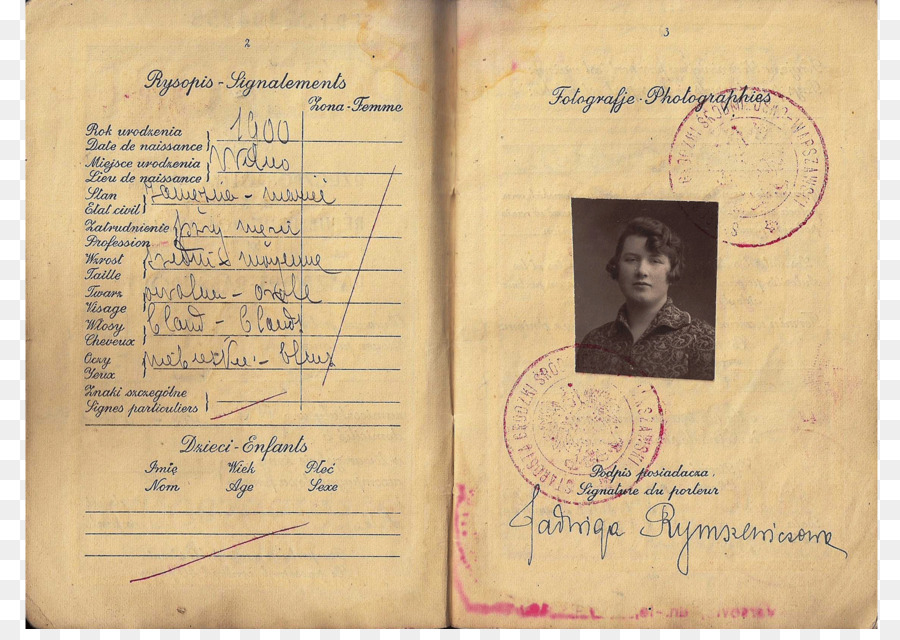 2
Rysopis - Signalements
Żona - Femme
Rok urodzenia
Date de naissance
1900
Miejsce urodzenia
Lieu de naissance
Wilno
Stan
Etat civil
Zatrudnienie
Profession
przy mężu
Wzrost
Taille
Twarz
Visage
owalna - ovale
Włosy
Cheveux
bland - blands
Oczy
Yeux
Znaki szczególne
Signes particuliers
Dzieci - Enfants
Imię Wiek Płeć
Nom Age Sexe
3
Fotografje - Photographies
Podpis posiadacza.
Signature du porteur
Jadwiga Rymszewiczowa